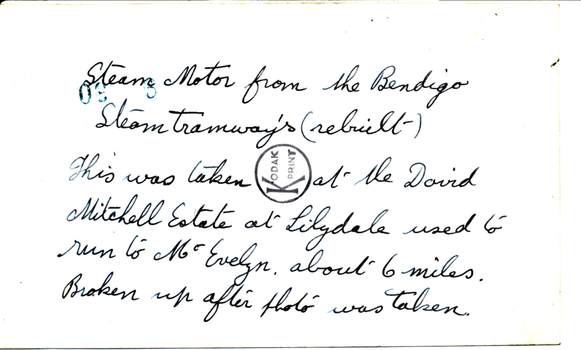 Steam Motor from the Bendigo
09 5
Steam tramways (rebuilt)
This was taken at the David
KODAK PRINT
Mitchell Estate at Lilydale used to
run to Mc Evelyn. about 6 miles.
Broken up after photo was taken.